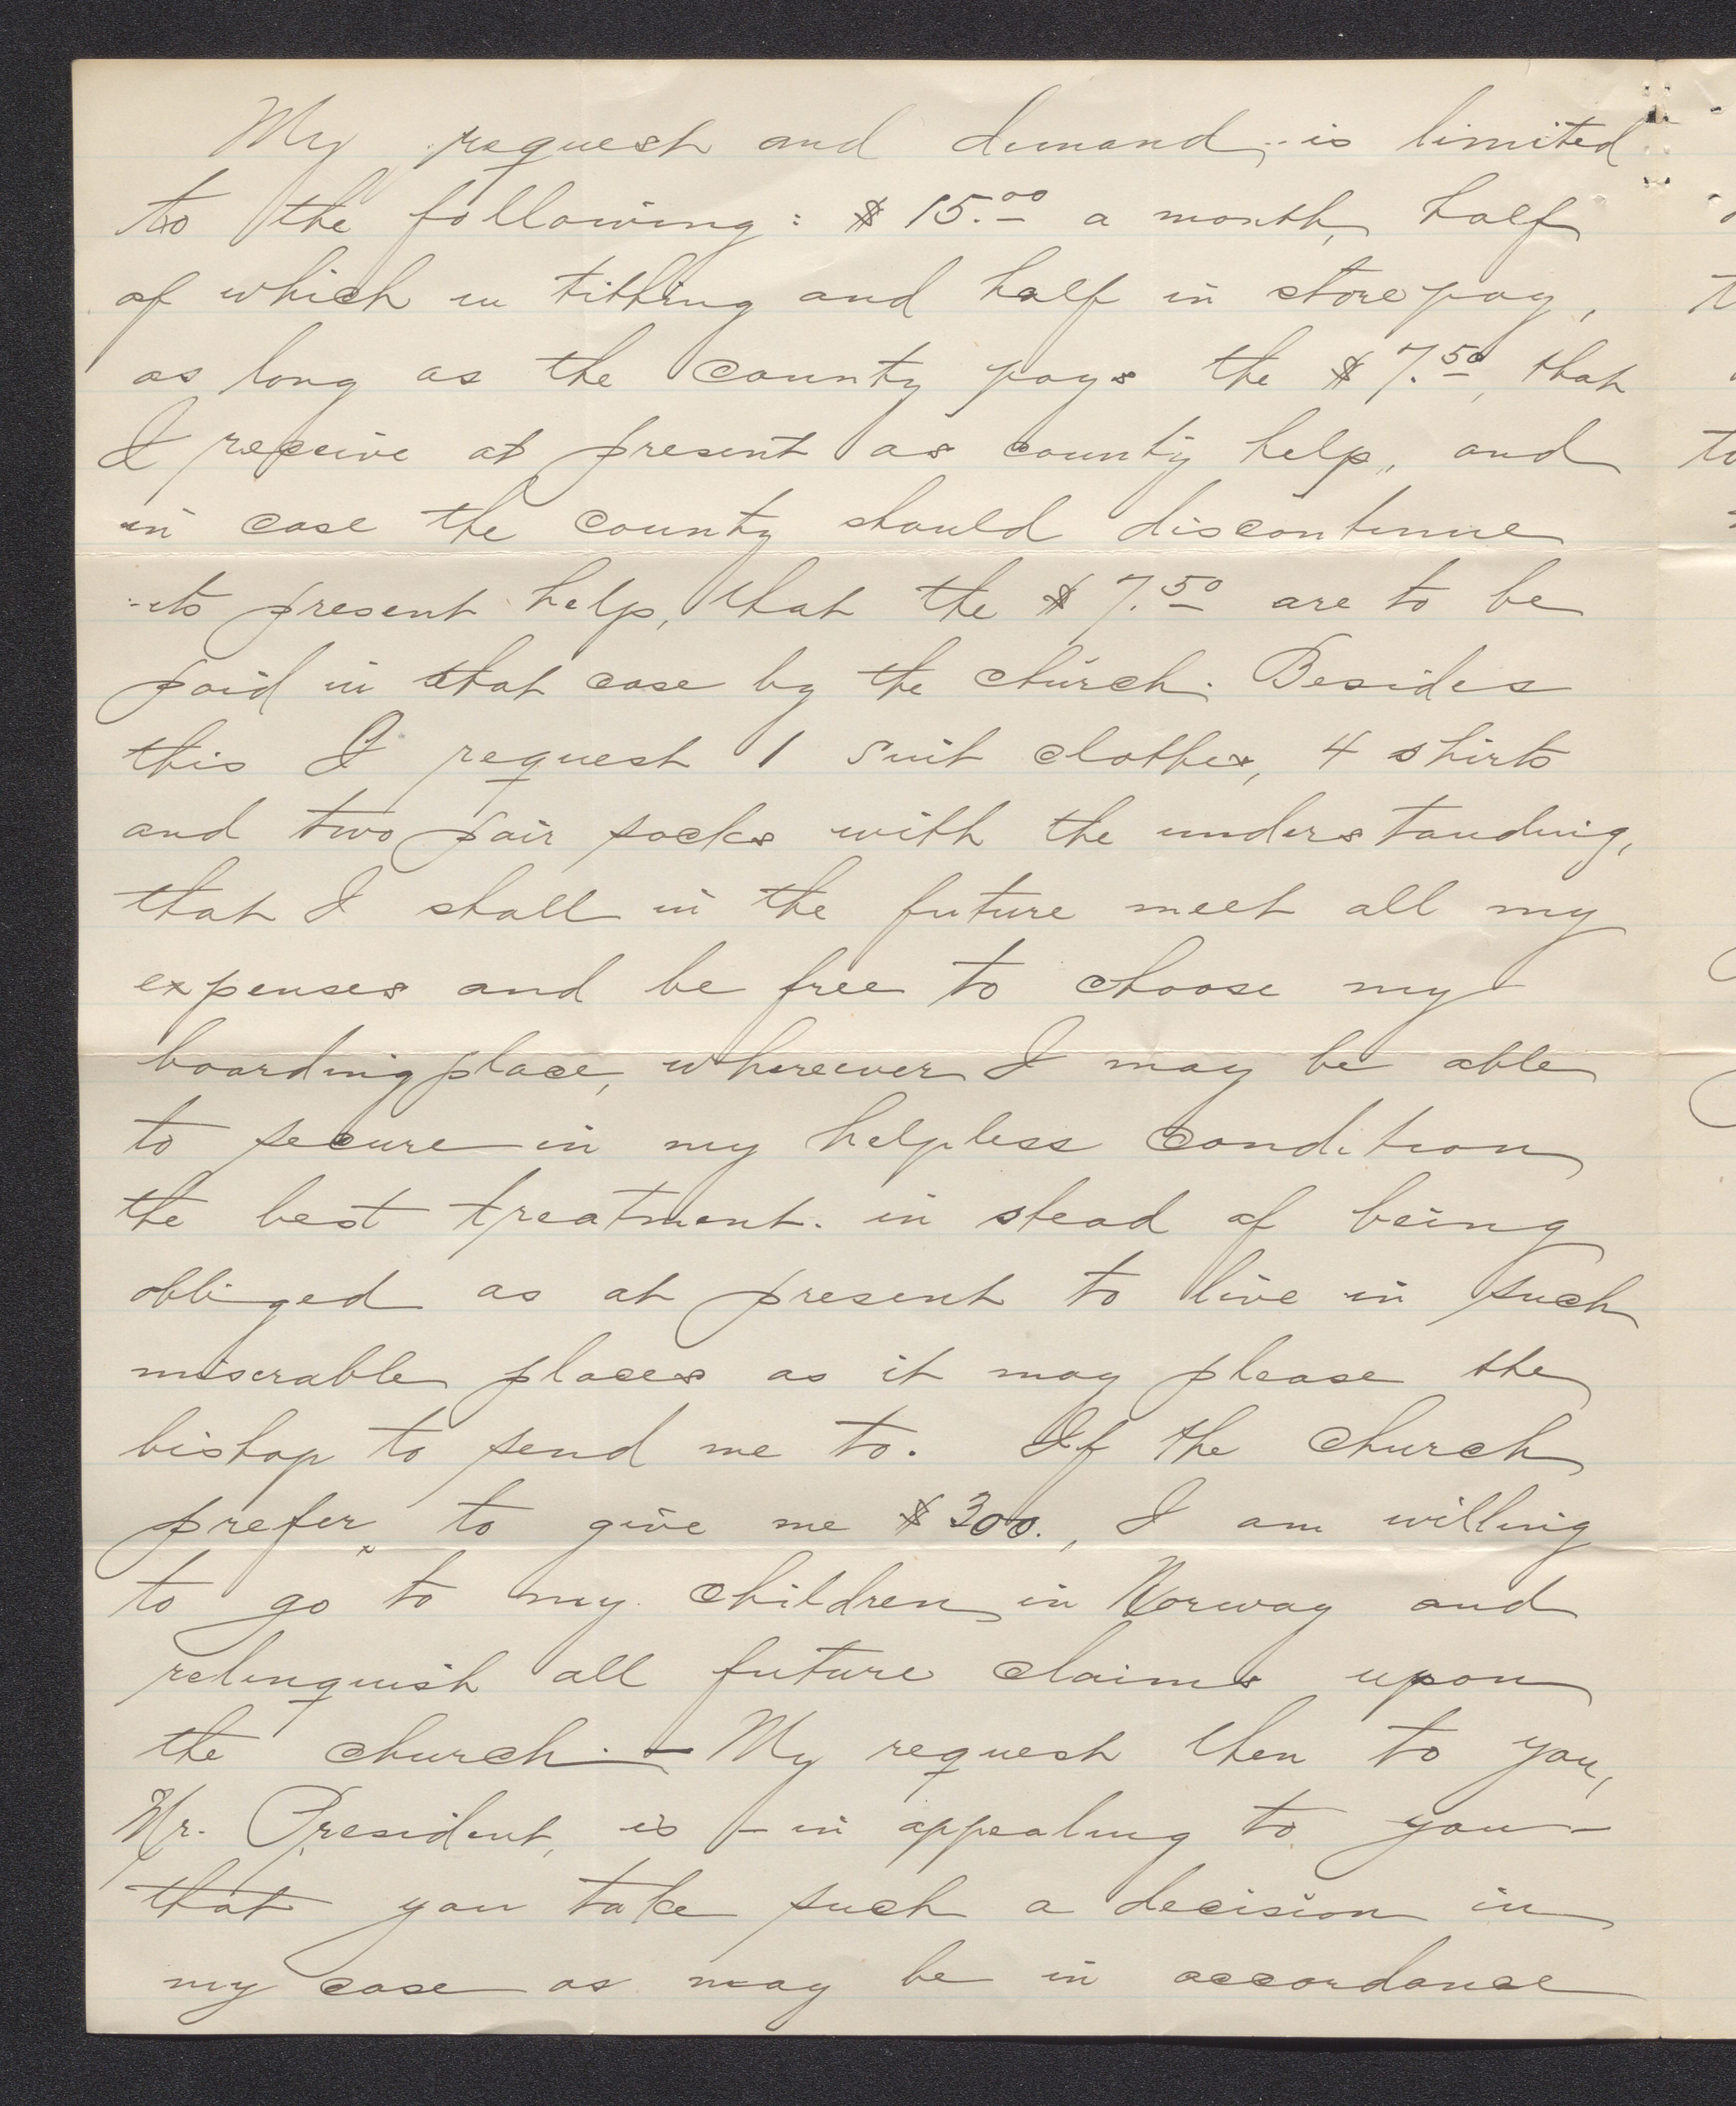 My request and demand is limited
to the following: $15.00 a month, half
of which in tithing and half in storepay,
as long as the county pays the $7.50, that
I receive at present as county help, and
in case the county should discontinue
its present help, that the $7.50 are to be
paid in that case by the church. Besides
this I request 1 suit clothes, 4 shirts
and two pair socks with the understanding,
that I shall in the future meet all my
expenses and be free to choose my
boardingplace, whereever I may be able
to secure in my helpless condition
the best treatment. in stead of being
obliged as at present to live in such
miserable places as it may please the
bishop to send me to. If the church
prefer to give me $300., I am willing
to go to my children in Norway and
relinquish all future claims upon
the church. — My request then to you,
Mr. President, is – in appealing to you –
that you take such a decision in
my case as may be in accordance